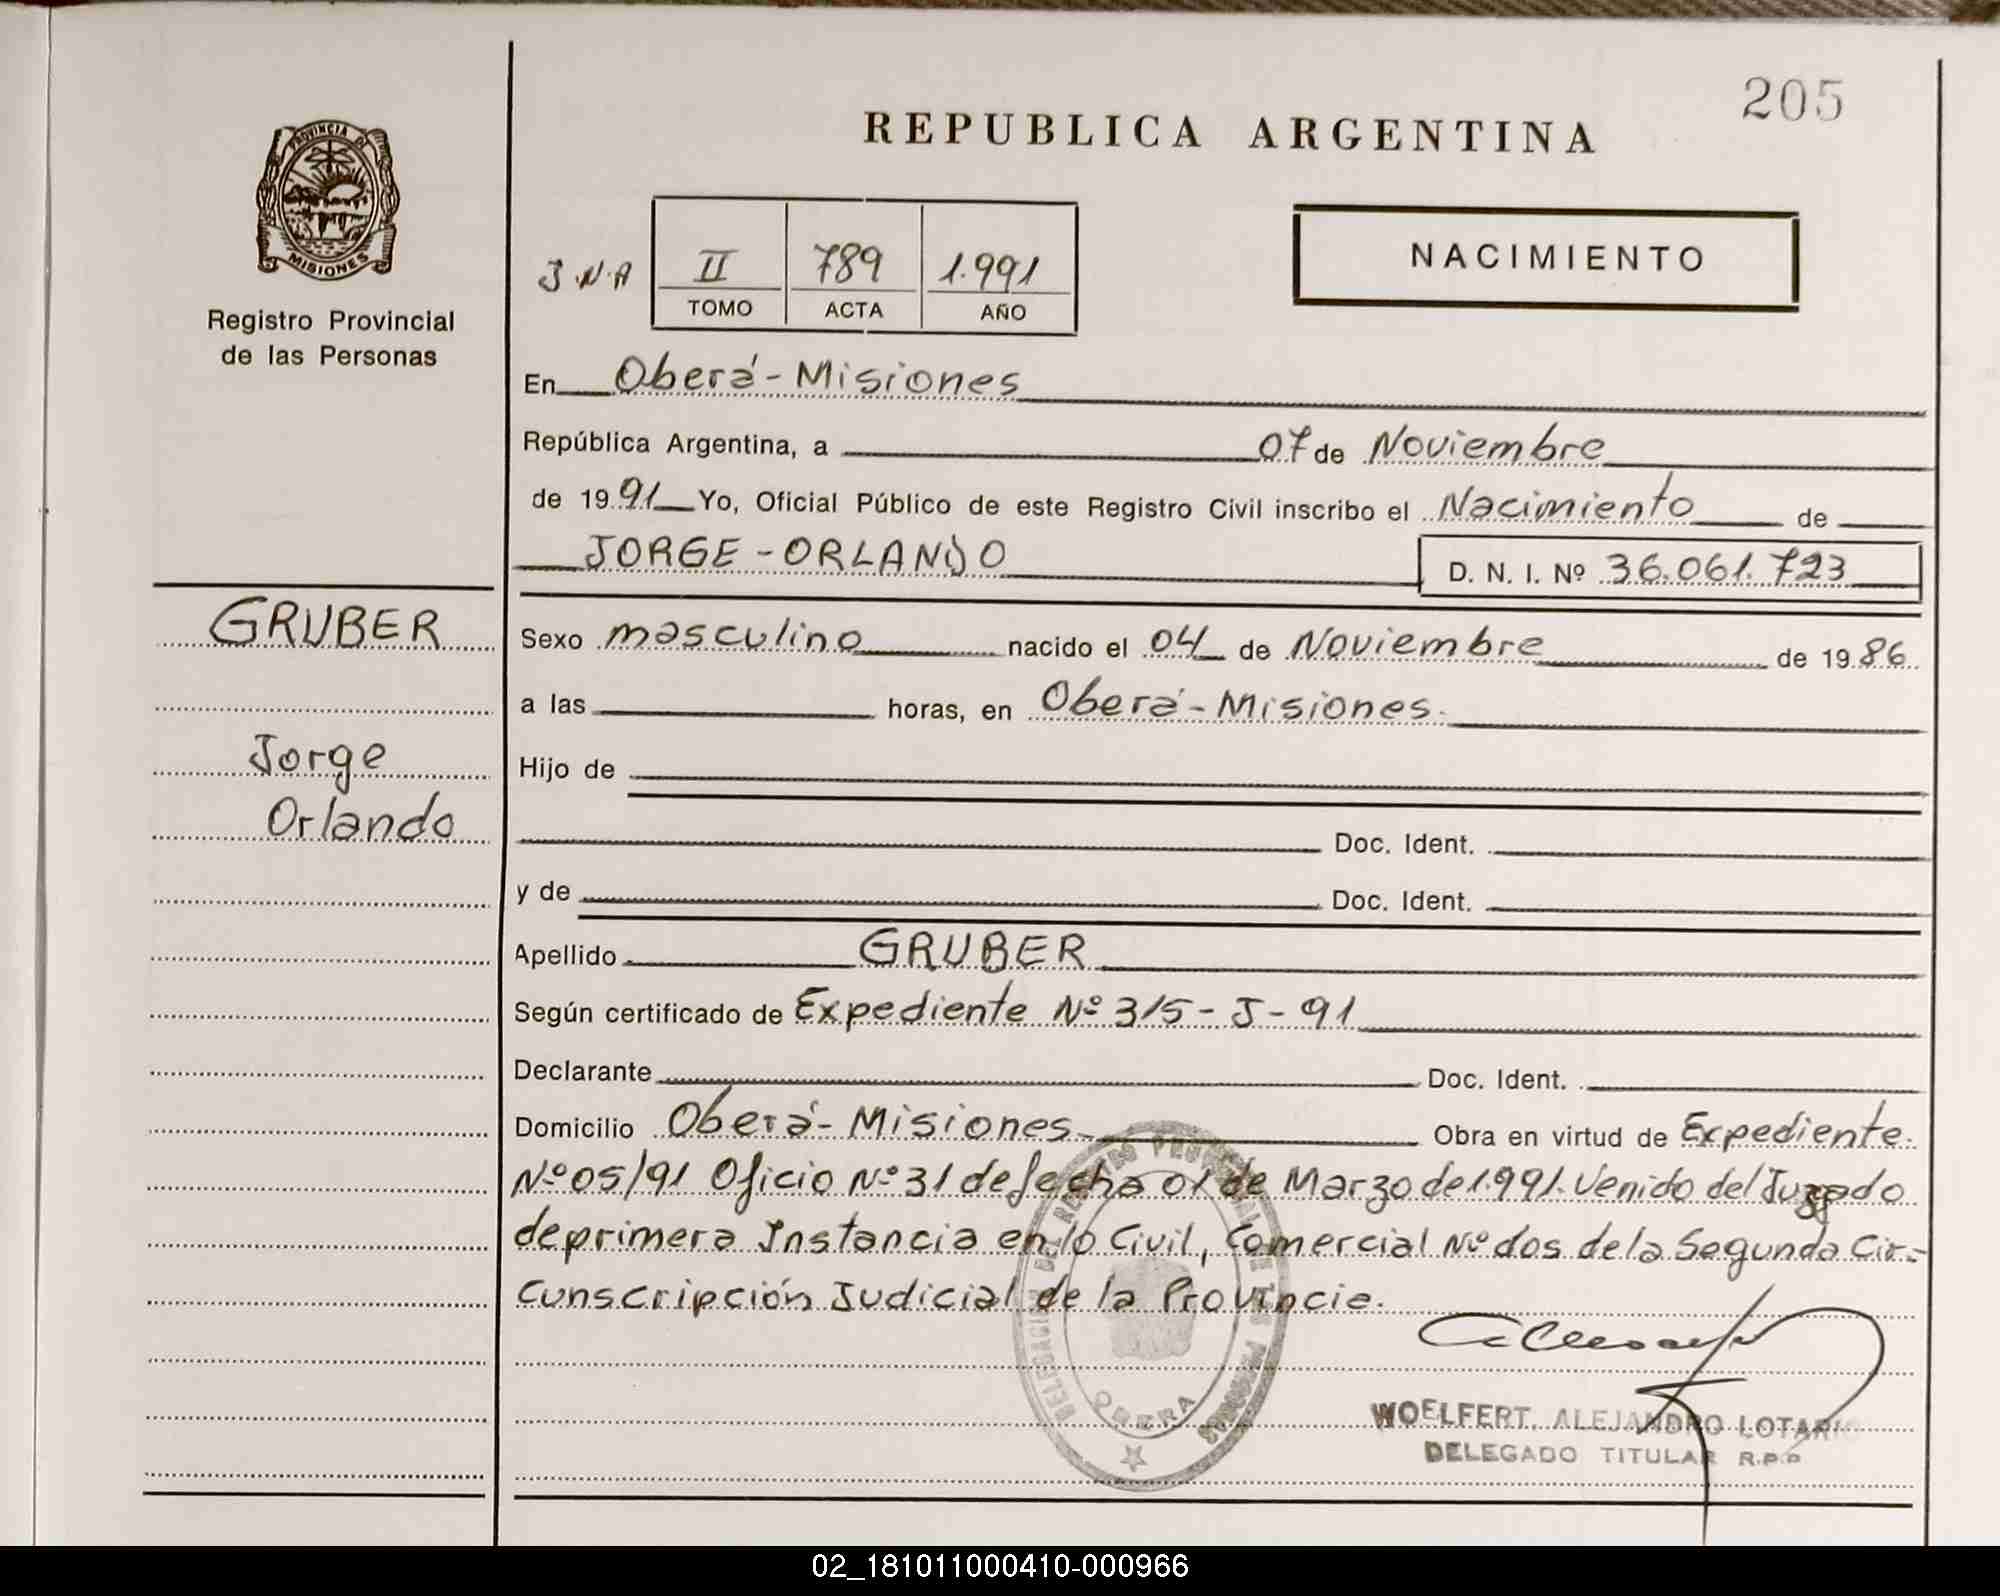 205
REPUBLICA ARGENTINA
PROVINCIA DE
MISIONES
Registro Provincial
de las Personas
J.N.A
II 789 1.991
TOMO ACTA AÑO
NACIMIENTO
En Oberá - Misiones
República Argentina, a 07 de Noviembre
de 1991 Yo, Oficial Público de este Registro Civil inscribo el Nacimiento de
JORGE - ORLANDO D. N. I. Nº 36.061.723
GRUBER
Jorge
Orlando
Sexo masculino nacido el 04 de Noviembre de 1986
a las horas, en Oberá - Misiones.
Hijo de
Doc. Ident.
y de Doc. Ident.
Apellido GRUBER
Según certificado de Expediente Nº 315 - J - 91
Declarante Doc. Ident.
Domicilio Oberá - Misiones Obra en virtud de Expediente
Nº 05/91 Oficio Nº 31 de fecha 01 de Marzo de 1.991. Venido del Juzgado
de primera Instancia en lo Civil, Comercial Nº dos de la Segunda Cir-
cunscripción Judicial de la Provincia.
DELEGACION DEL REGISTRO PROVINCIAL DE LAS PERSONAS
OBERA
WOELFERT, ALEJANDRO LOTARIO
DELEGADO TITULAR R.P.P
02_181011000410-000966